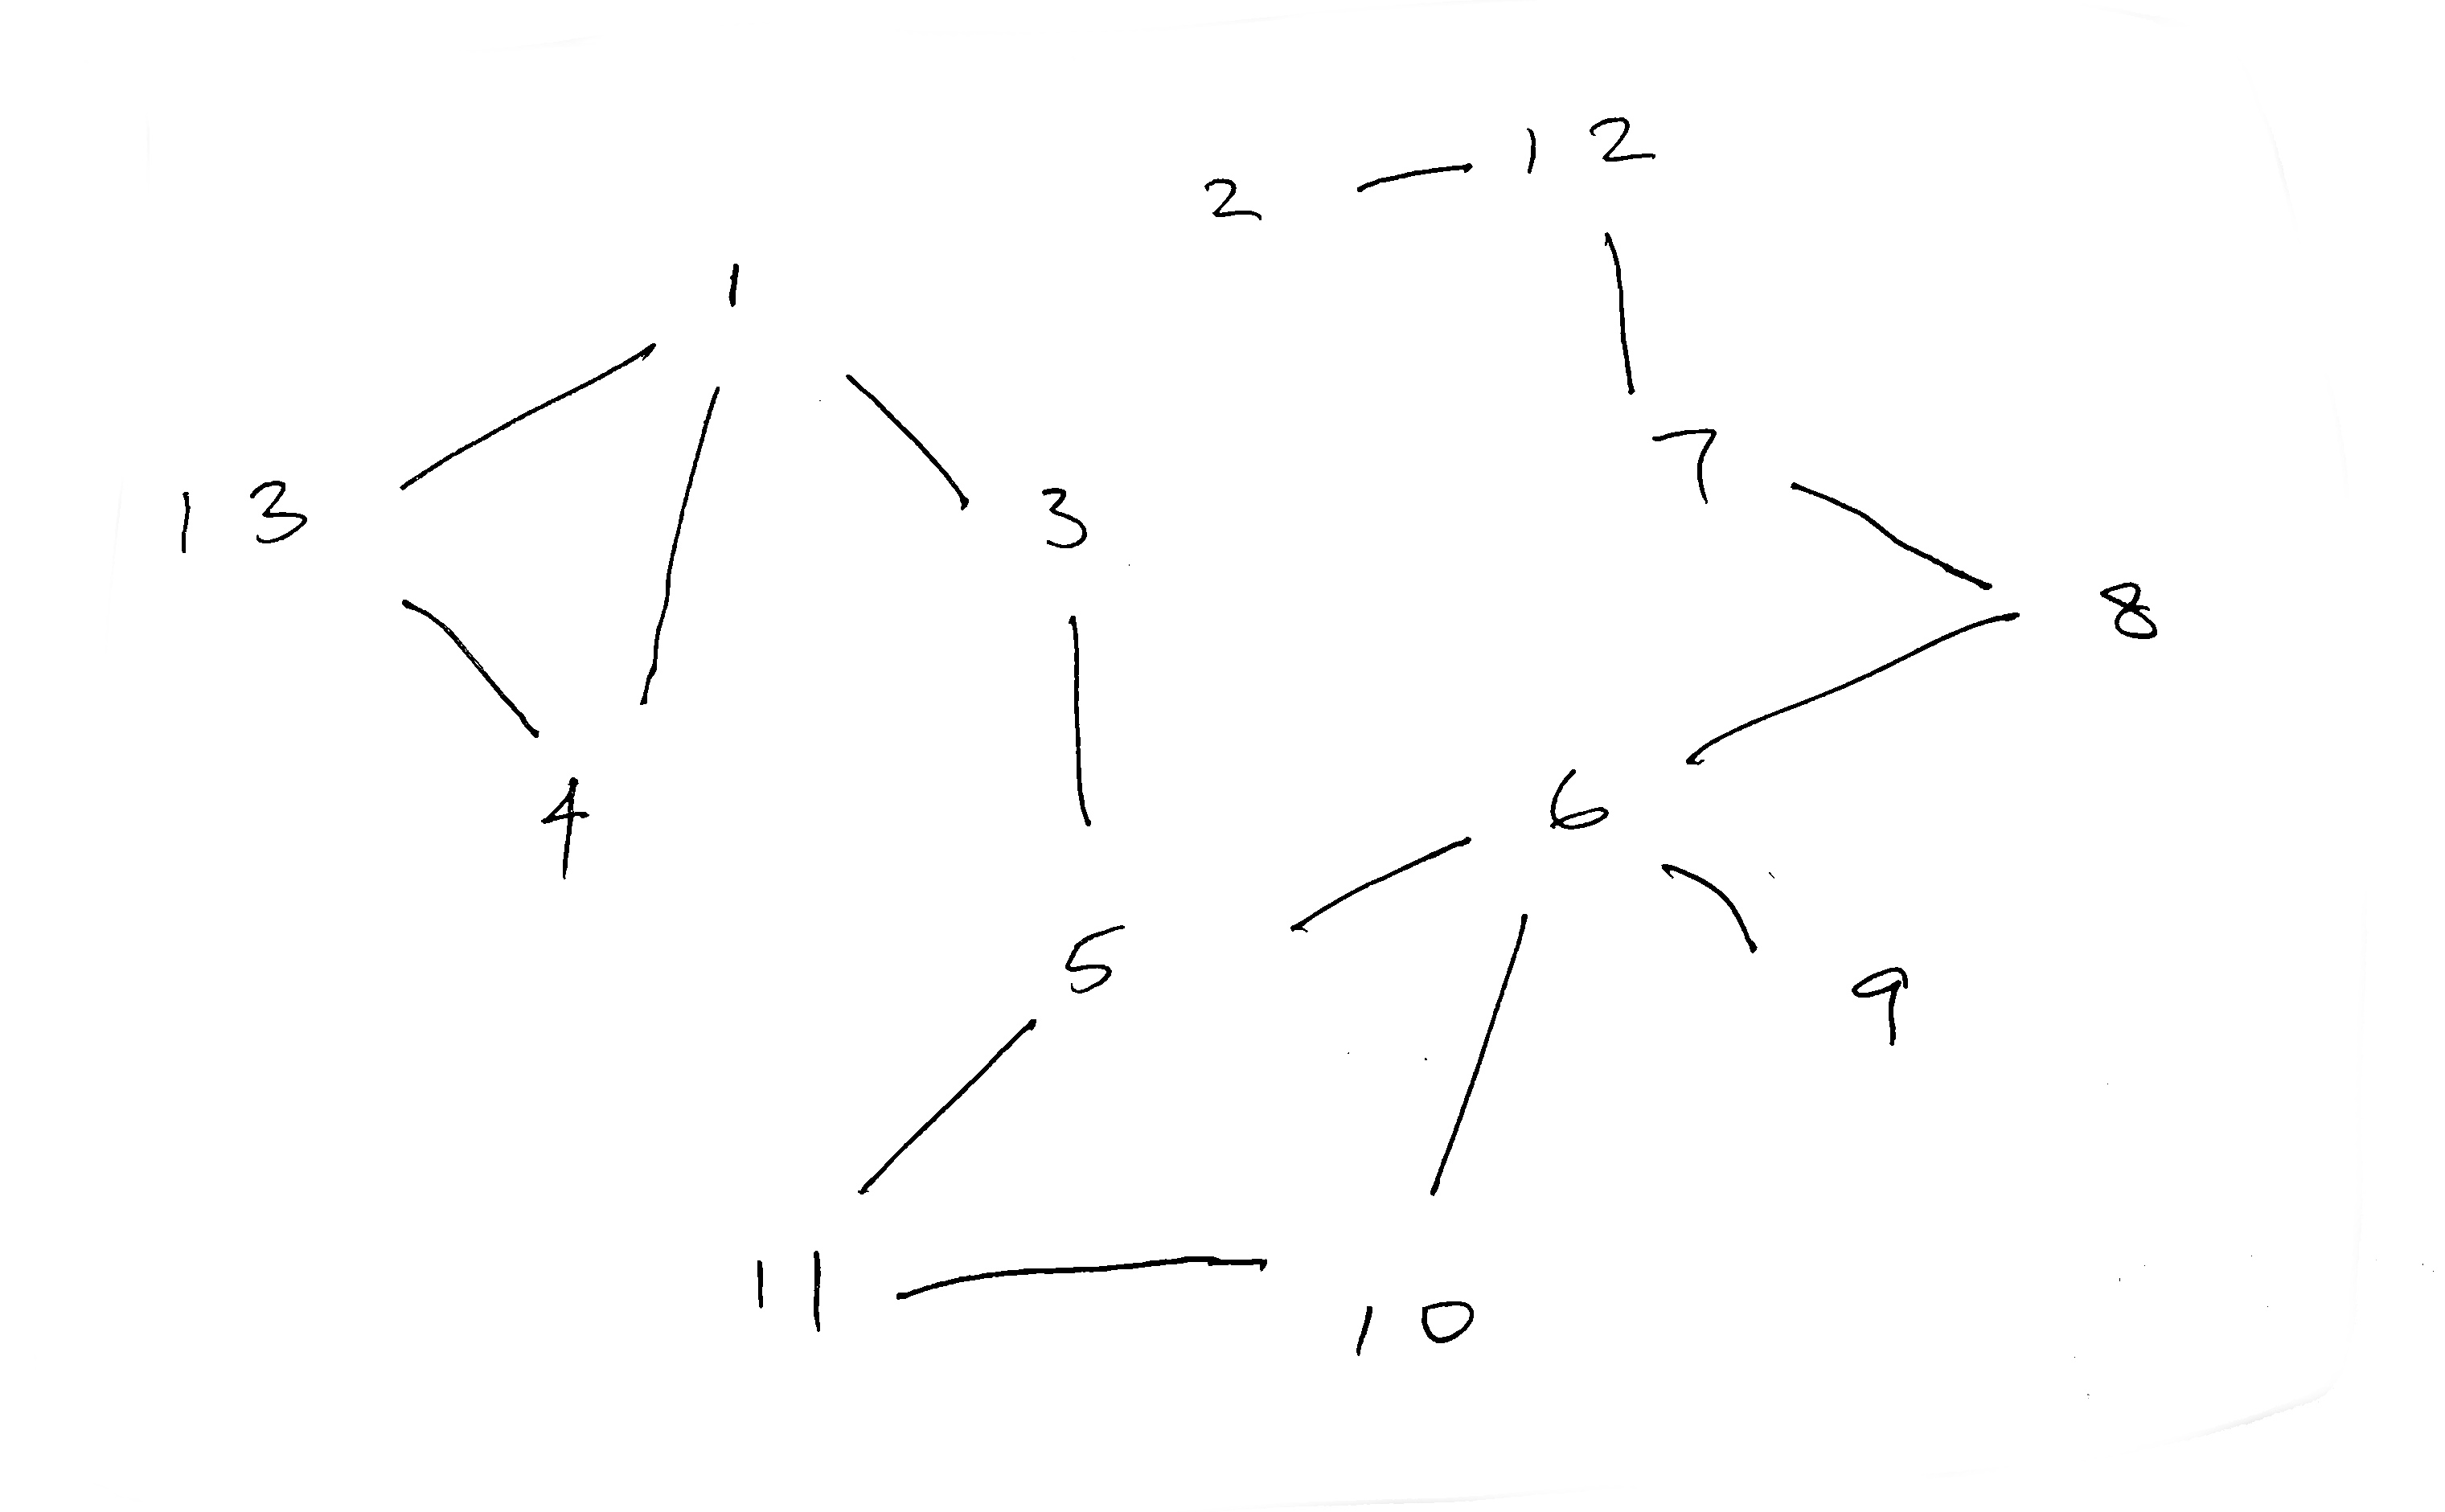 2
12
1
7
13
3
8
4
6
5
9
11
10